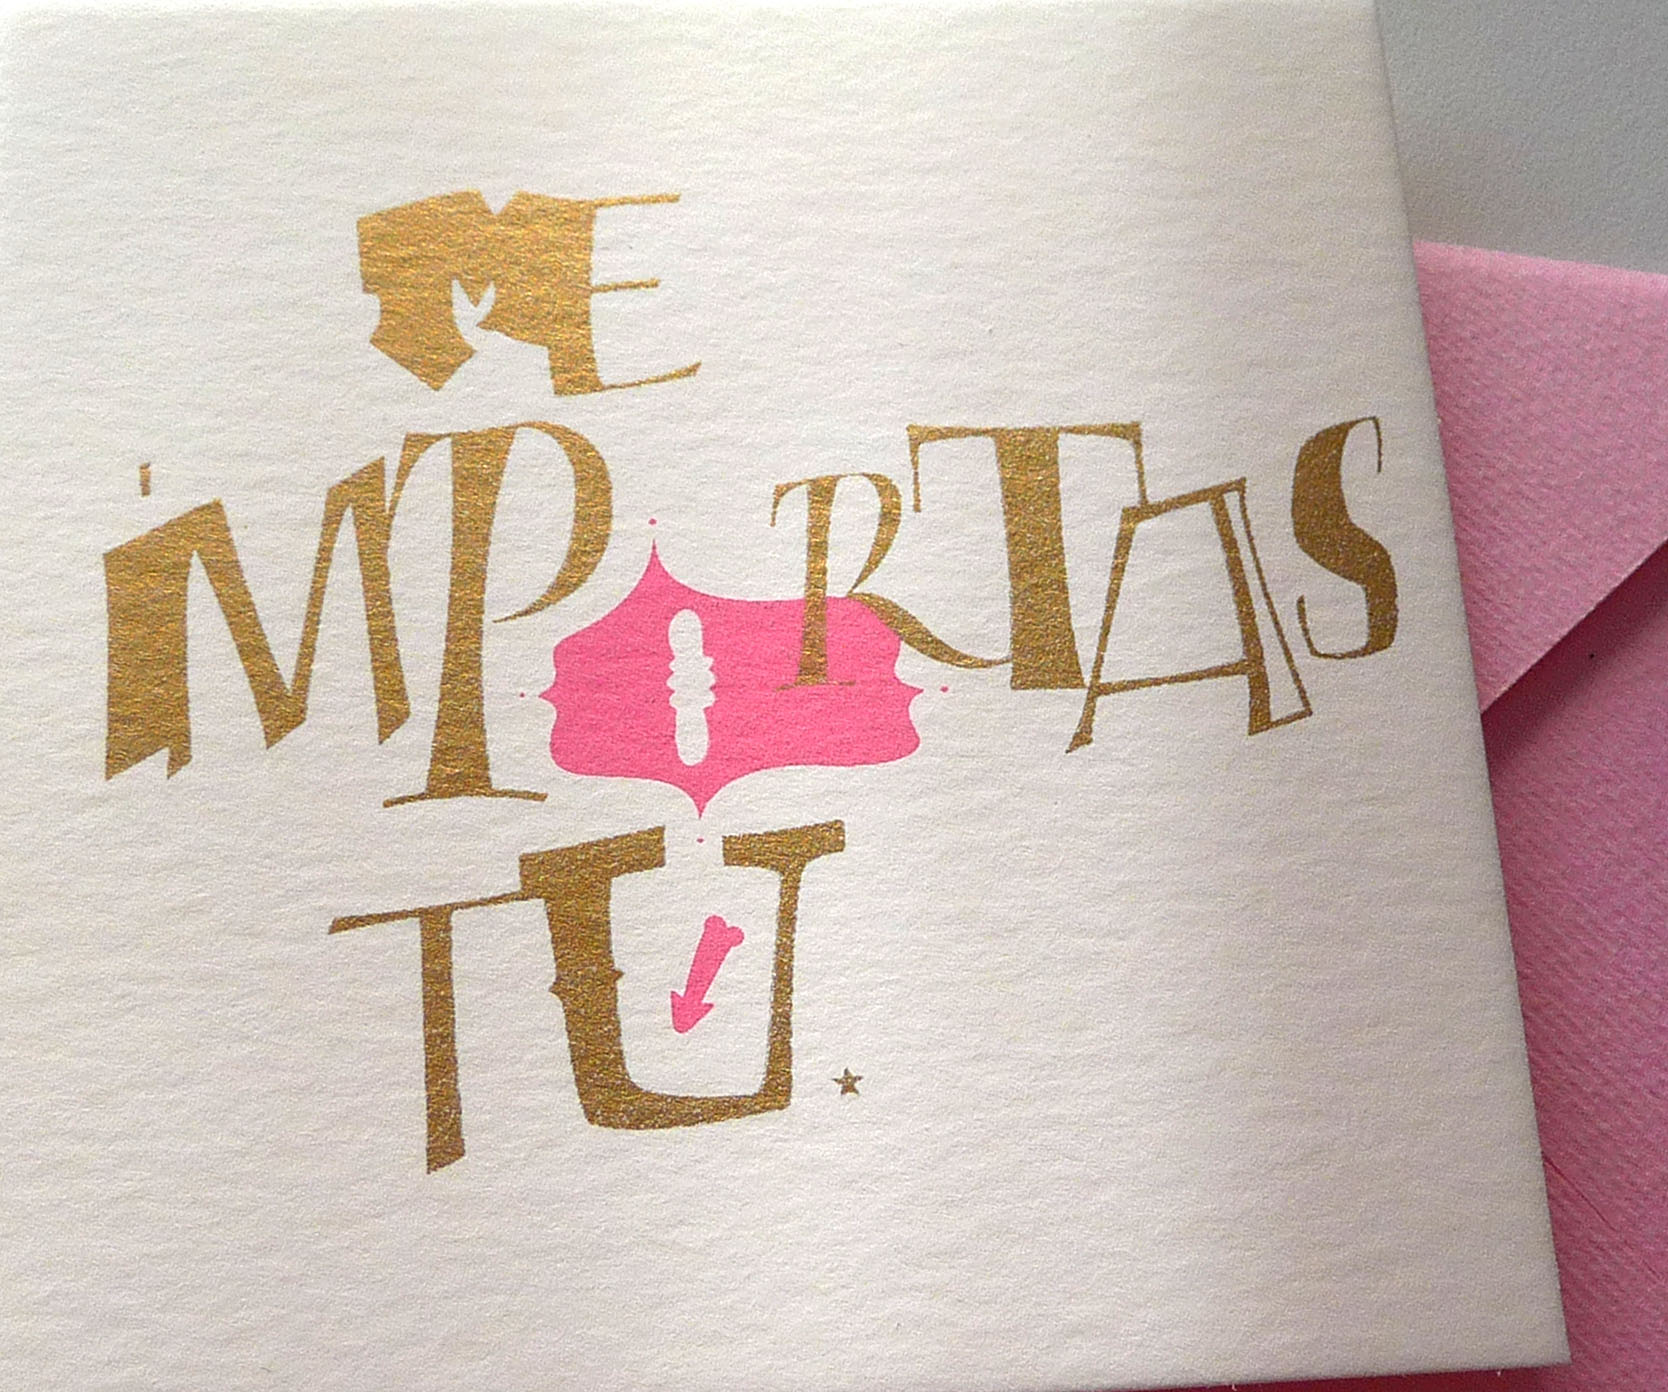 ME
iMPORTAS
TU.